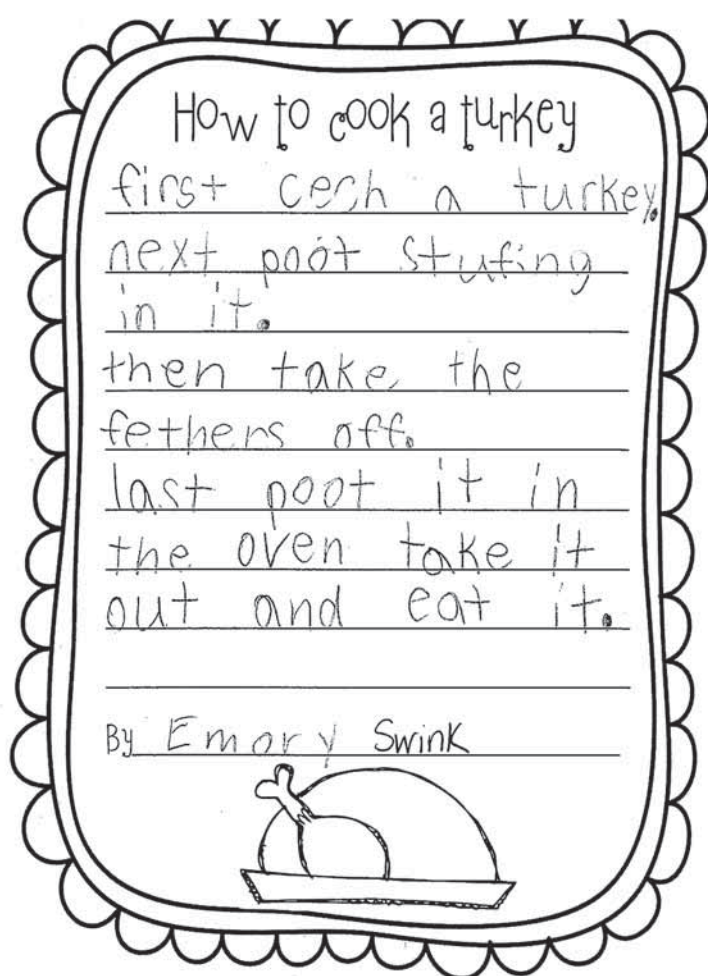 How to cook a turkey
first cech a turkey.
next poot stufing
in it.
then take the
fethers off.
last poot it in
the oven take it
out and eat it.
By Emory Swink